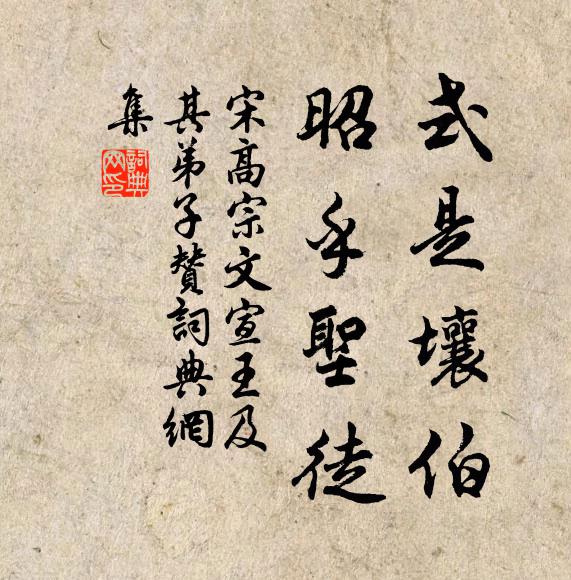 式是壤伯
昭乎聖徒
宋高宗文宣王及
其弟子贊詞典網
集
詞典
网印